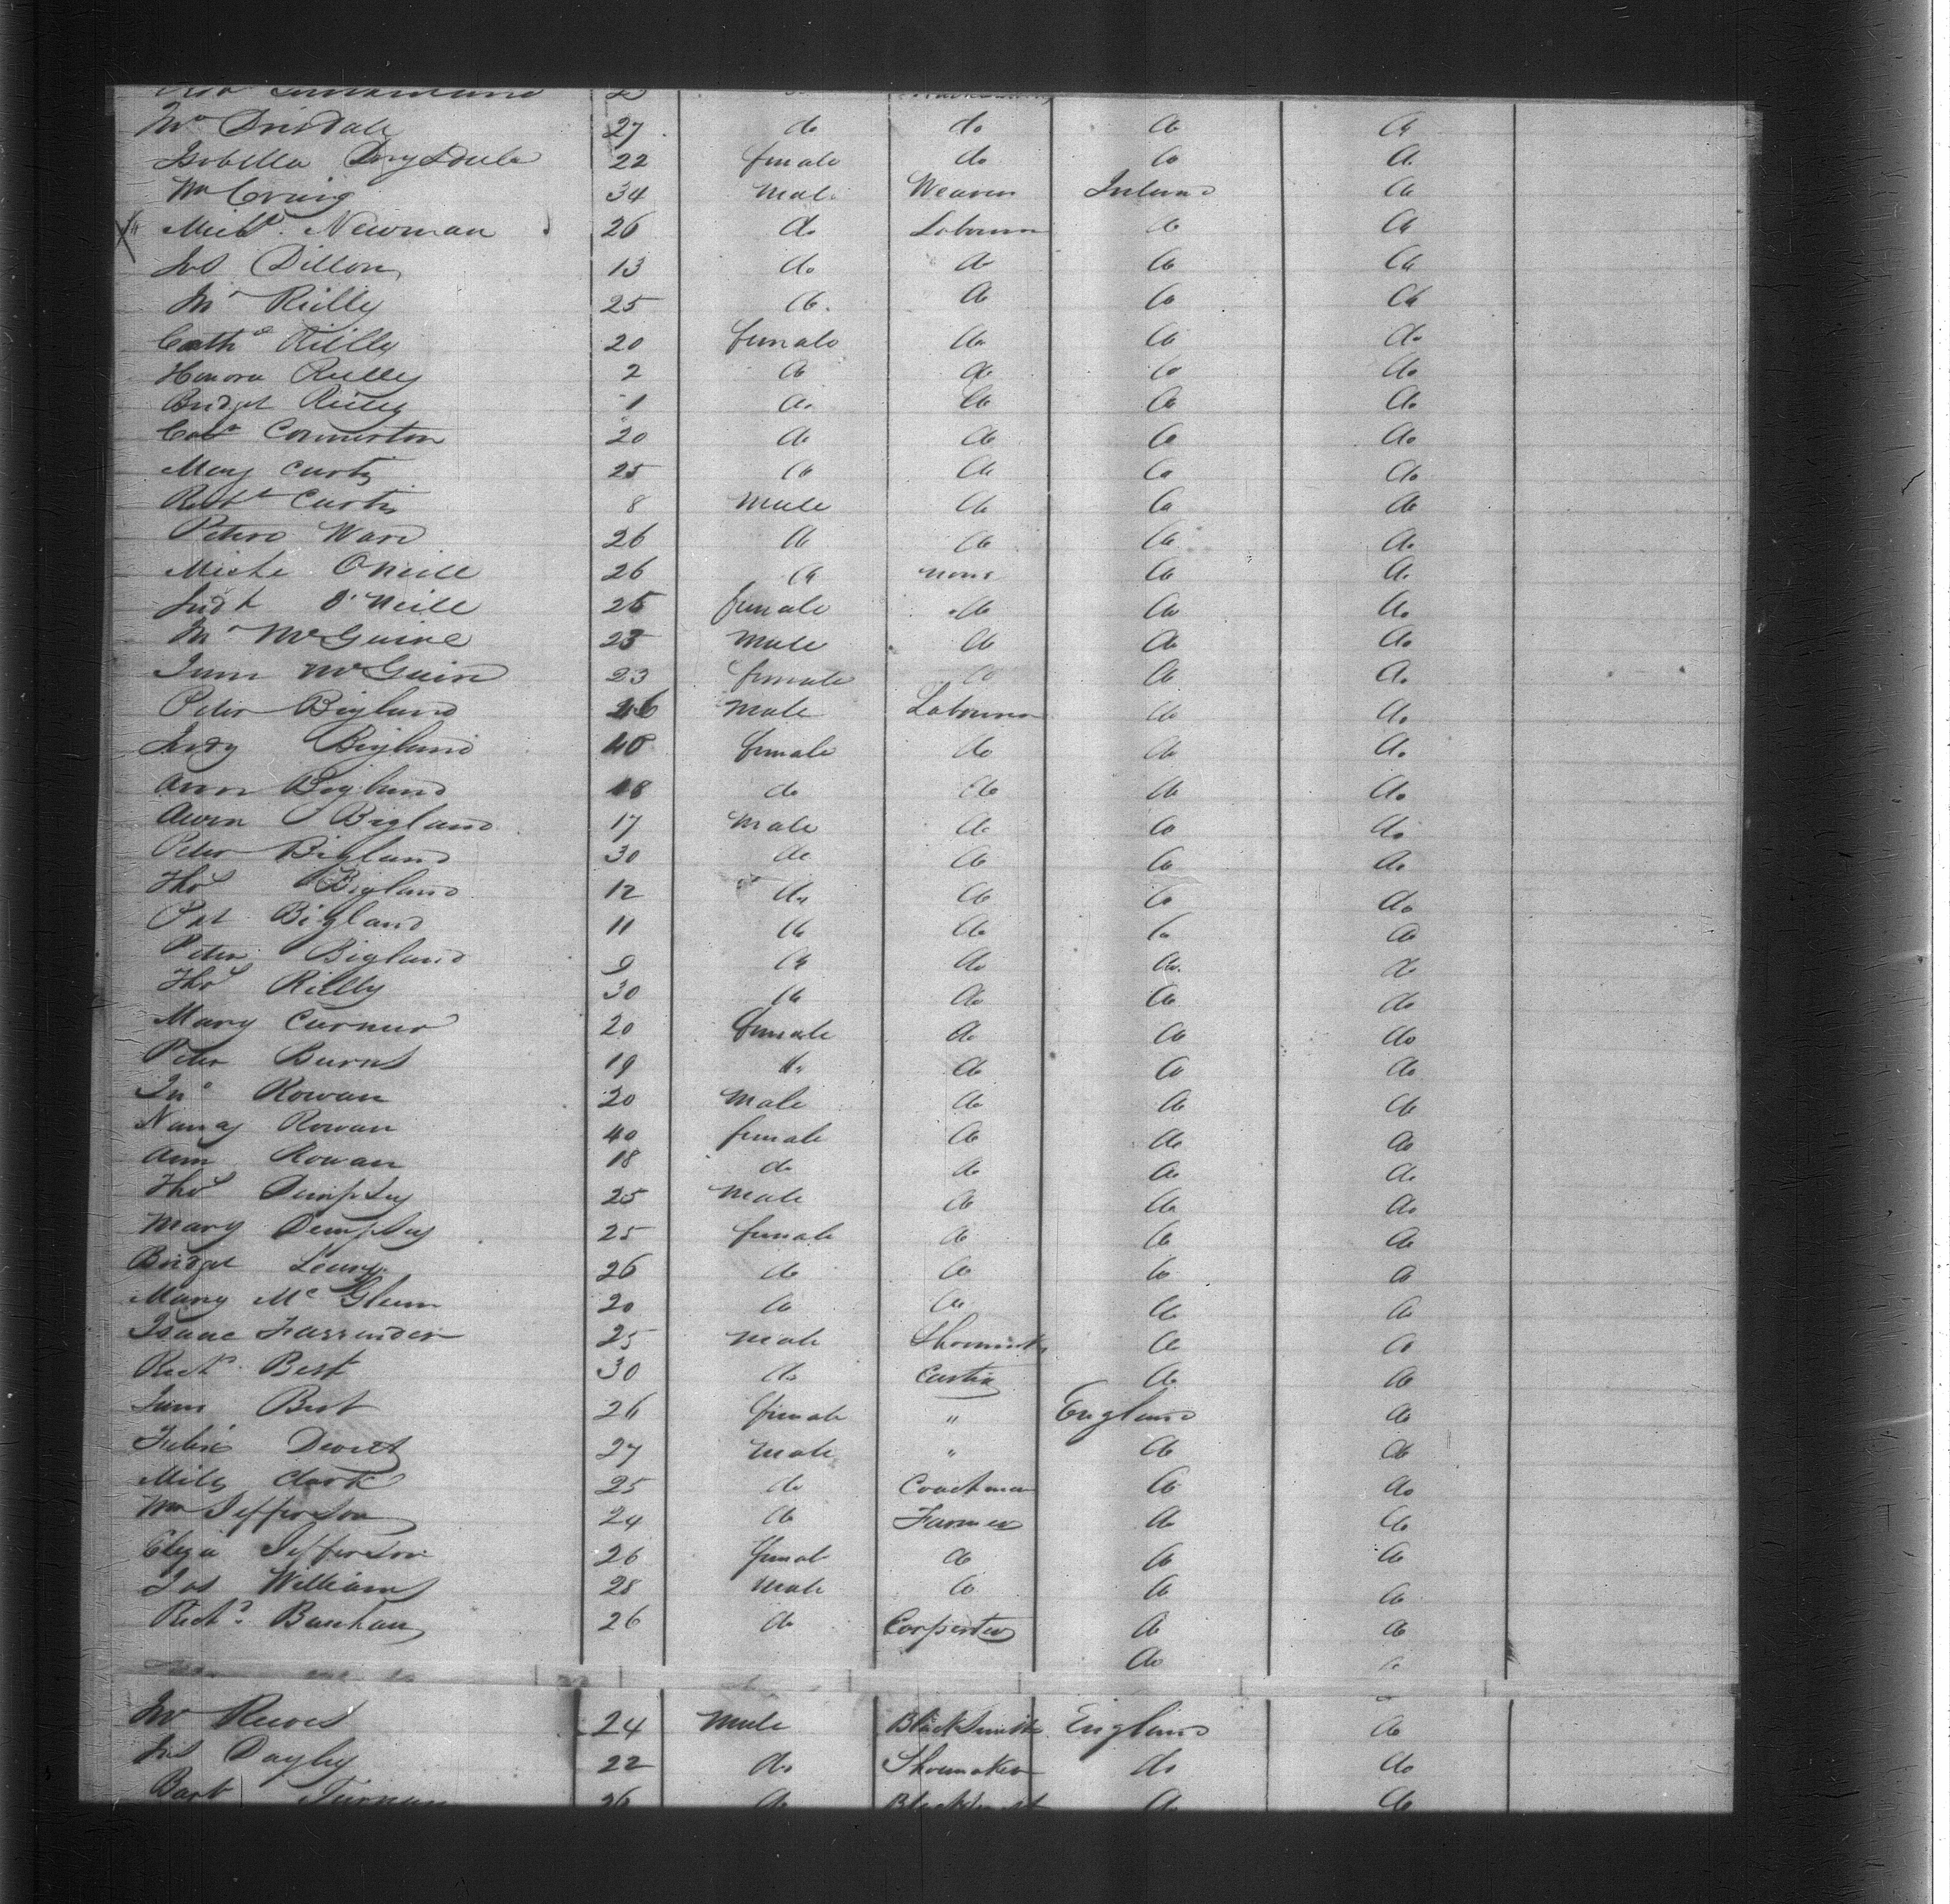 Wm Drisdale 27 do do do do
Isobella Drysdale 22 female do do do
Wm Craig 34 Male Weaver Ireland do
Michl. Newman 26 do Labourer do do
Jas Dillon 13 do do do do
Jno Reilly 25 do. do do do
Cathe Reilly 20 female do do do
Honora Reilly 2 do do do do
Bridget Reilly 1 do. do do do
Connerton 20 do do do do
Mary Curtis 25 do do do do
Robt Curtis 8 Male do do do
Peter Ward 26 do do do do
Miche ONeill 26 do none do do
Judt O'Neill 25 female do do do
Jno McGuire 23 Male do do do
Jane McGuire 23 female do do do
Peter Bigland Male Labourer do do
Judy Bigland 40 female do do do
Ann Bigland 18 do do do do
Owen Bigland 17 Male do do do
Peter Bigland 30 do do do do
Thos Bigland 12 do do do do
Pat Bigland 11 do do do do
Peter Bigland 9 do do do do
Thos Rielly 30 do do do do
Mary 20 female do do do
Peter Burns 19 do do do do
Jno Rowan 20 Male do do do
Nancy Rowan 40 female do do do
Ann Rowan 18 do do do do
Thos Dempsey 25 Male do do do
Mary Dempsey 25 female do do do
Bridget 26 do do do do
Mary Mc Glenn 20 do do do do
Isaac Farrander 25 Male do do
Richd. Best 30 do do do
Jane Best 26 female " England do
27 Male " do do
Miles Clark 25 do Coachman do do
Wm Jefferson 24 do Farmer do do
Eliza Jefferson 26 female do do do
Jos Williams 28 Male do do do
Richd. Banham 26 do Carpenter do do
do do
Jno Reeves 24 Male Blacksmith England do
Jas Dayley 22 do Shoemaker do do
Bart 26 do Blacksmith do do